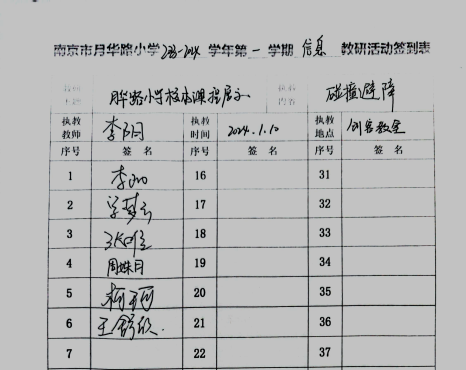 南京市月华路小学23-2024学年第一学期 信息 教研活动签到表
教研主题 月华路小学校本课程展示 执教内容 碰撞避障
执教教师 李阳 执教时间 2024.1.10 执教地点 创客教室
序号 签名 序号 签名 序号 签名
1 16 31
2 17 32
3 18 33
4 周姝日 19 34
5 20 35
6 王舒欣 21 36
7 22 37